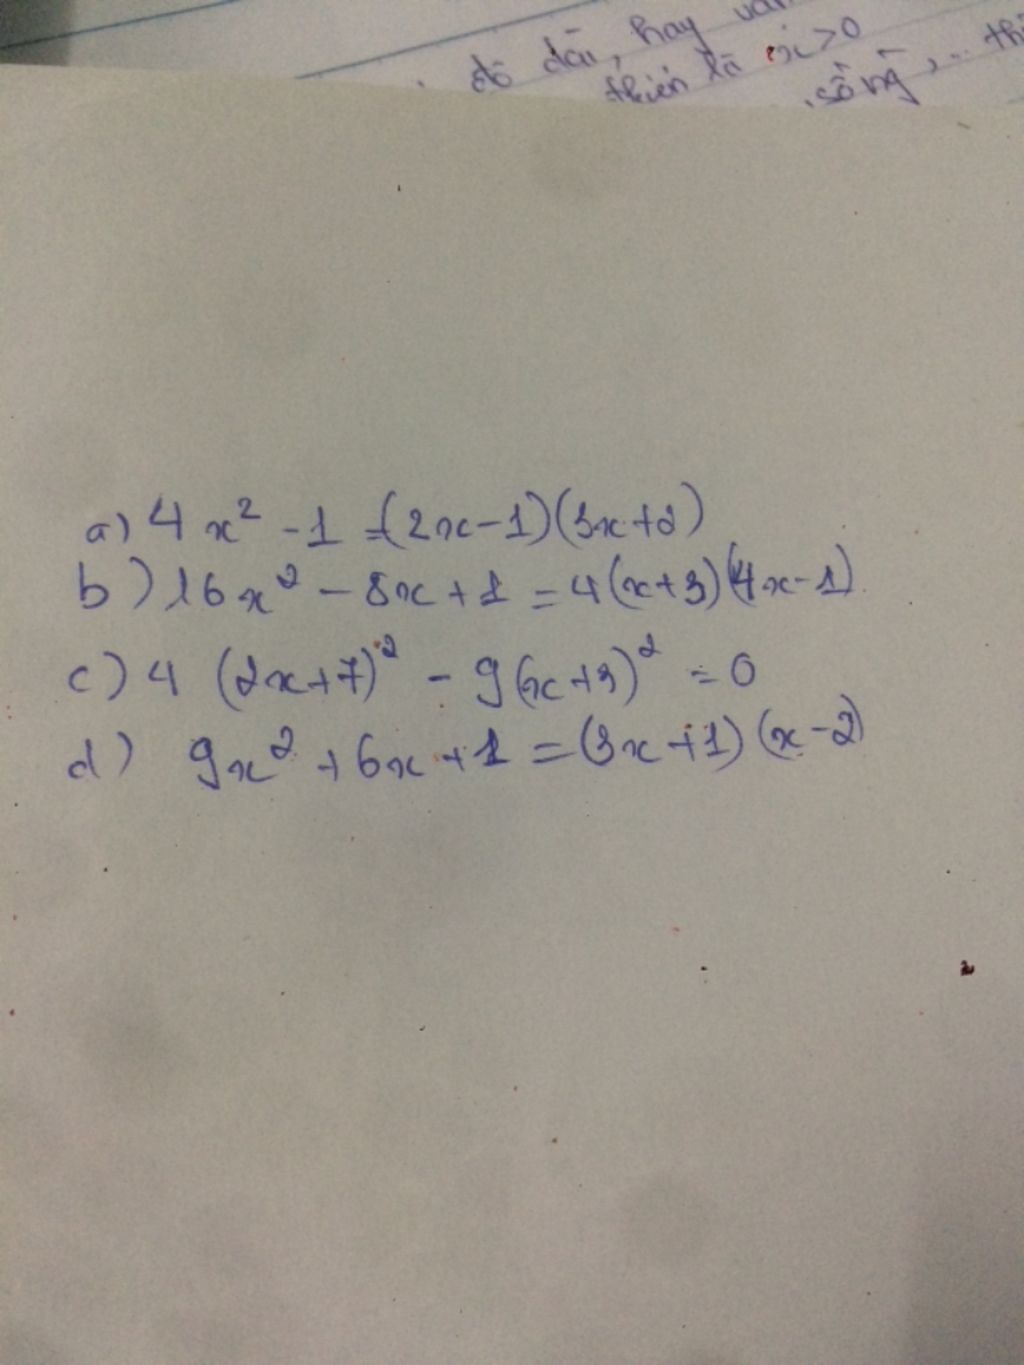 độ dài, hay vận
thiên là x>0
sông, .. thì
a) 4x² - 1 = (2x-1)(3x+2)
b) 16x² - 8x + 1 = 4(x+3)(4x-1)
c) 4 (2x+7)² - 9(x+3)² = 0
d) 9x² + 6x + 1 = (3x+1)(x-2)